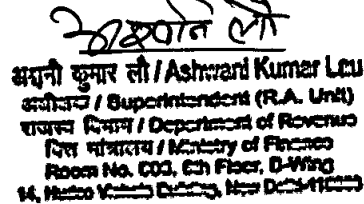 अश्वनी लौ
अश्वनी कुमार लौ / Ashwani Kumar Lau
अधीक्षक / Superintendent (R.A. Unit)
राजस्व विभाग / Department of Revenue
वित्त मंत्रालय / Ministry of Finance
Room No. 6th Floor, D-Wing
14, Building, New Delhi